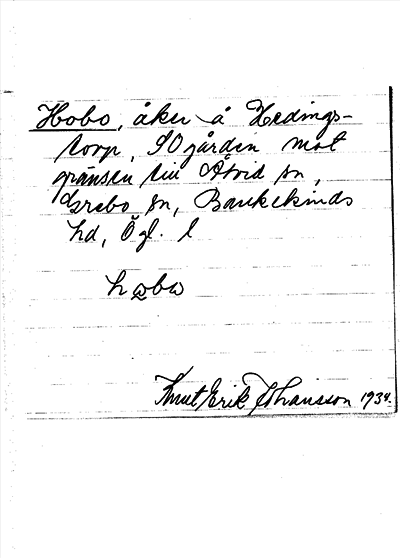 Hobo, åker å Hedings-
torp, SOgården mot
gränsen till Åtvid sn,
Grebo sn, Bankekinds
hd, Ögl. l
hωbω
Knut Erik Johansson 1934.